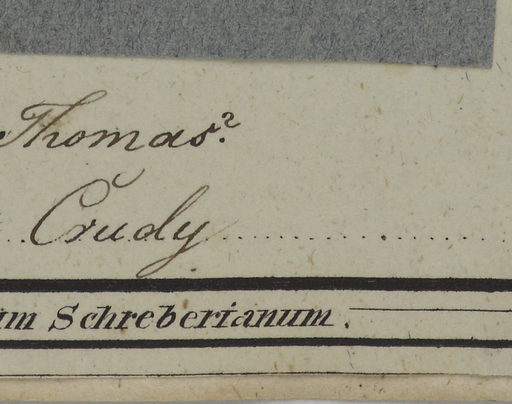 Thomas?
Crudy
um Schreberianum.